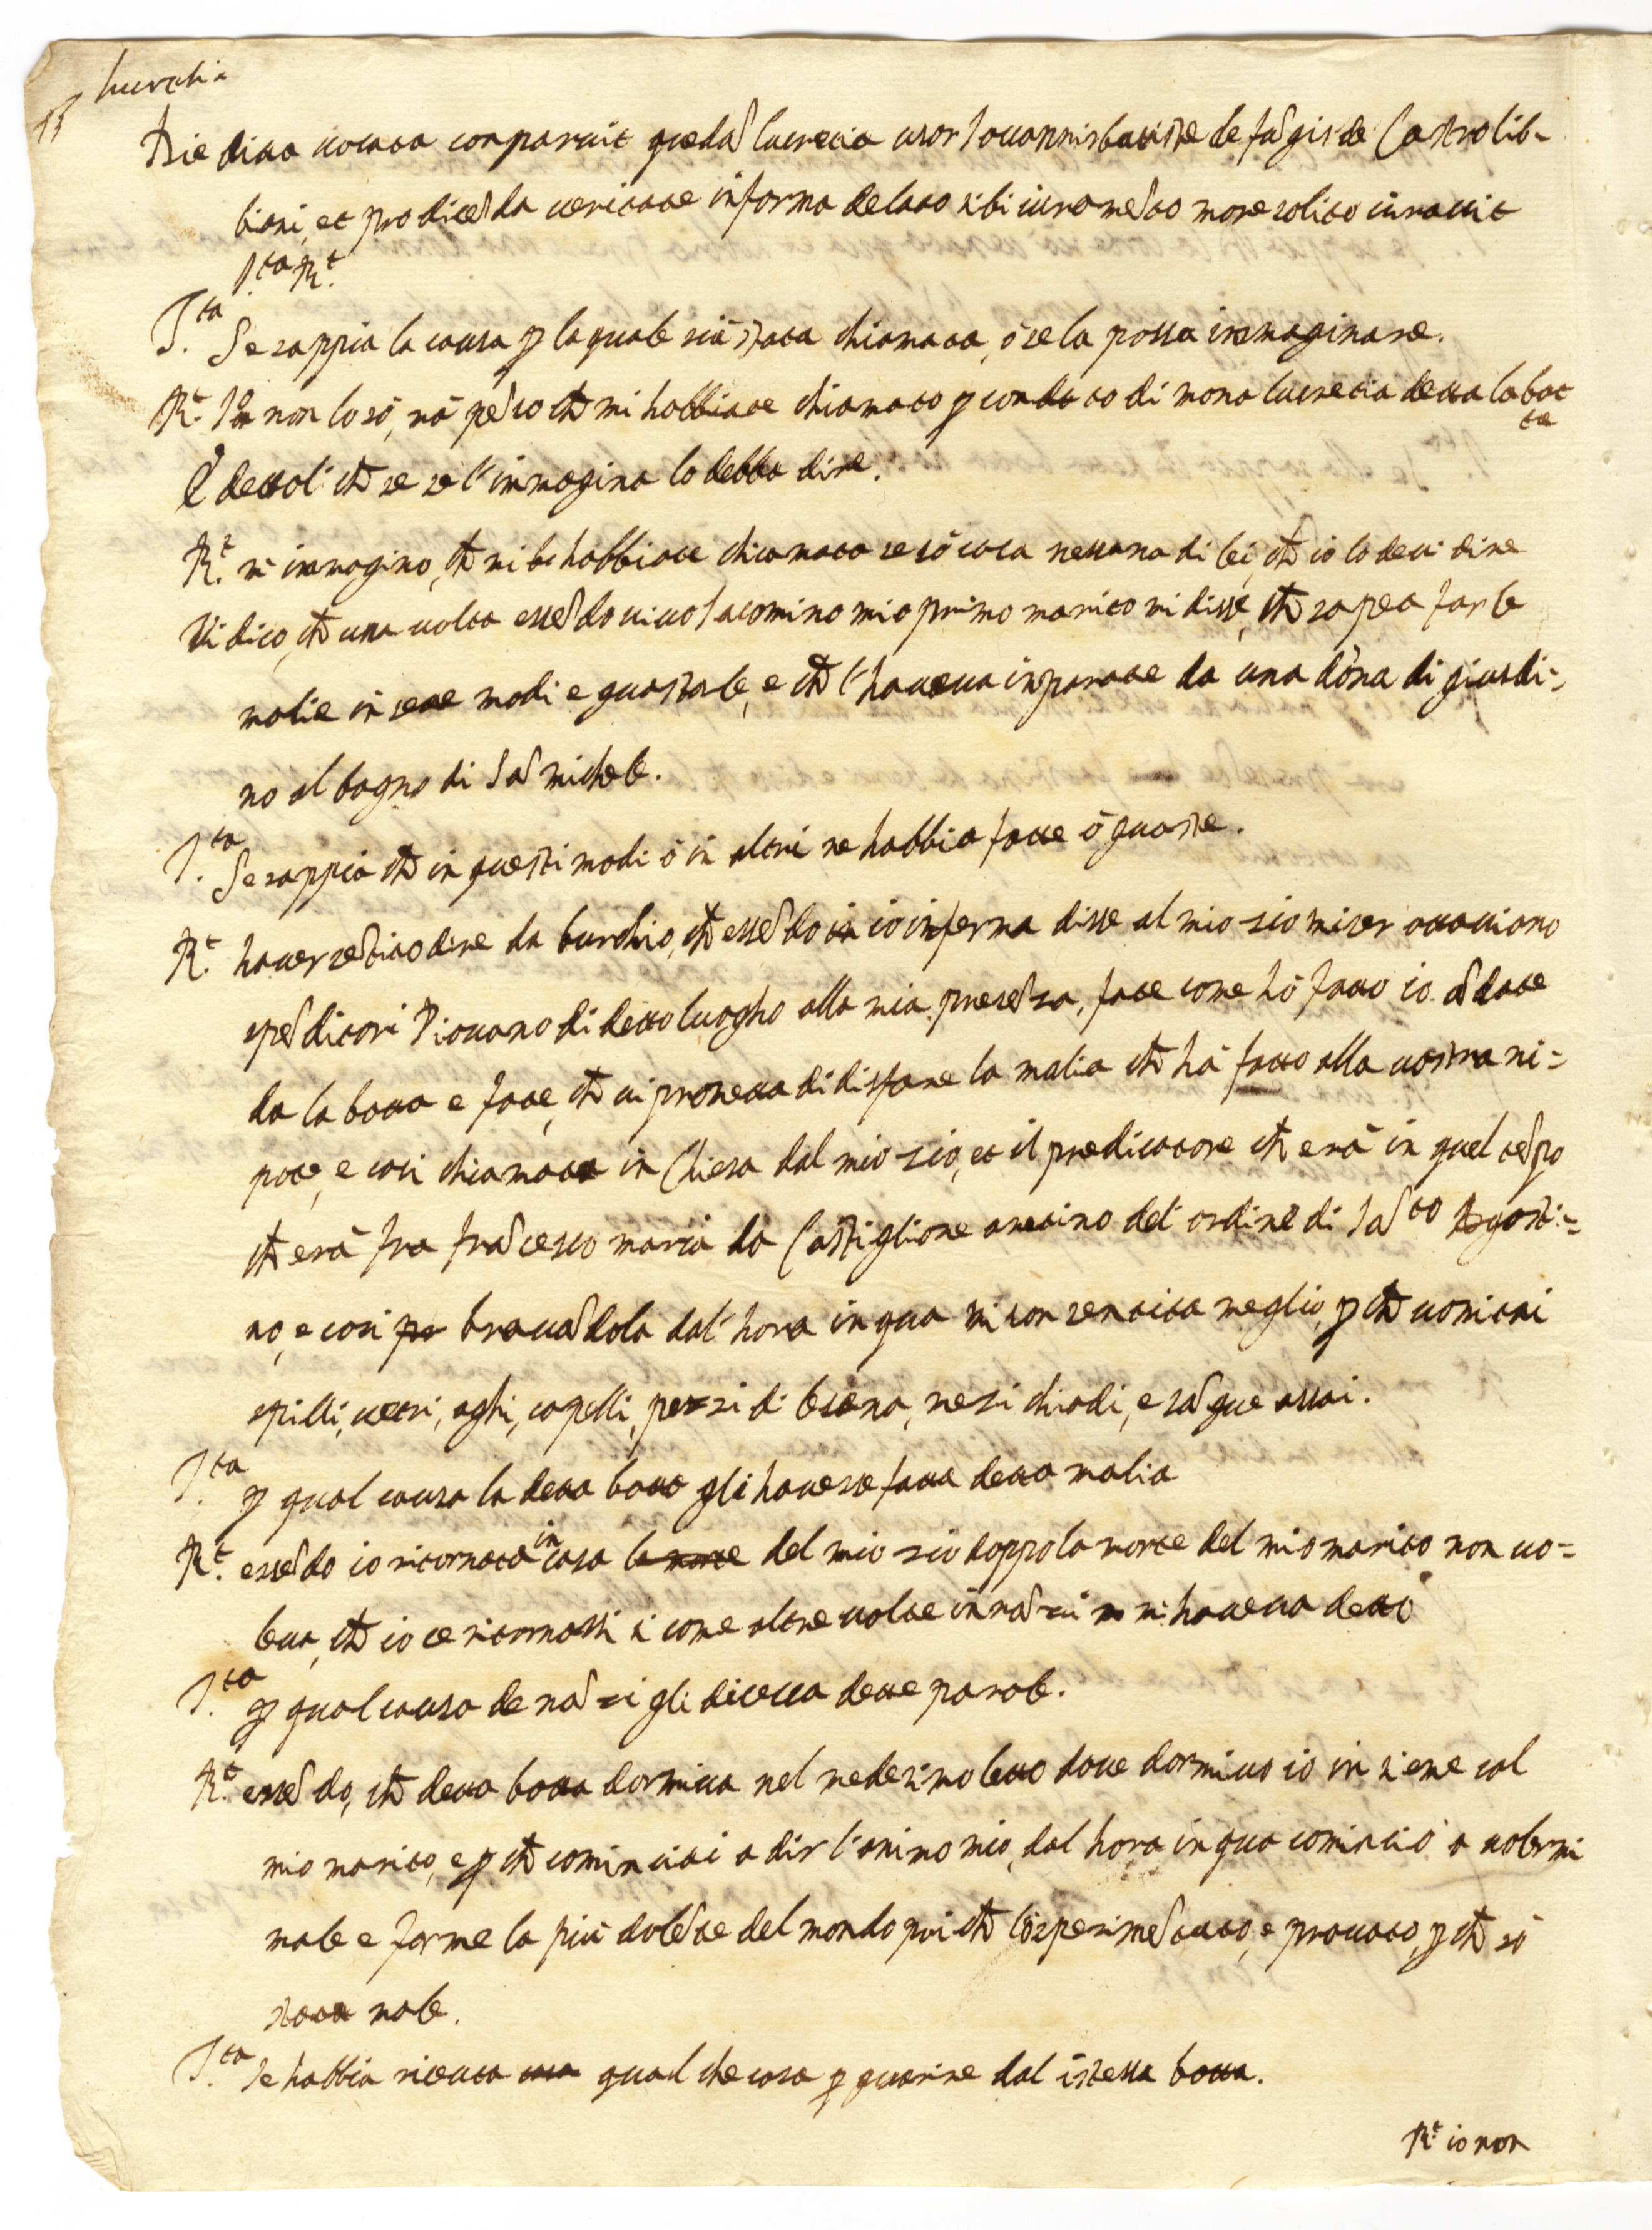 lucretia
Die dicta vocata comparuit queda lucretia uxor Jovannisbatiste de fagis de Castro lib-
biani, et pro dicenda veritate in forma delato sibi iuramento more solito iuravit
Jta Rt
Jta Se sappia la causa p la quale sia stata chiamata, ò se la possa immaginare.
Rt Io non lo sò, mà penso ch mi habbiate chiamato p conto di mona lucretia detta la bot
ta
E dettoli ch se se l'immagina lo debba dire.
Rt mi immagino, ch mi habbiate chiamata se sò cosa nessuna di lei, ch io lo devi dire
Vi dico, ch una volta essendo vivo Jacomino mio primo marito mi disse, ch sapea far le
malie in sette modi e guastarle, e ch l'haveva inparate da una dòna di giusdi-
no al bagno di San michele.
Jta Se sappia ch in questi modi ò in altri ne habbia fatte ò guaste.
Rt haver sentito dire da burchio, ch essendo io inferma disse al mio zio miser ottaviano
spenditori Piovano di detto luogho alla mia presenza, fate come hò fatto io andate
da la botta e fate, ch vi prometta di disfare la malia ch hà fatto alla vostra ni=
pote, e cosi chiamata in Chiesa dal mio zio, et il predicatore ch erà in quel tenpo
ch erà fra francesco maria da Castiglione aretino del' ordine di santo Agosti=
no, e cosi bravandola dal' hora in qua mi son sentita meglio, p ch vomitai
spilli, vetri, aghi, capelli, pezzi di lesena, nezi chiodi, e sangue assai.
Jta p qual causa la detta botta gli havesse fatta detta malia
Rt essendo io ritornata in casa del mio zio doppo la morte del mio marito non vo=
leva, ch io ce ritornassi si come altre volte innanzi mi haveva detto
Jta p qual causa de nanzi gli diceva dette parole.
Rt essendo, ch detta botta dormiva nel medesimo letto dove dormivo io insieme col
mio marito, e p ch cominciai a dir l'animo mio, dal hora in qua cominciò a volermi
male e farme la più dolente del mondo poi ch l'ò sperimentato, e provato, p ch sò
stata male.
Jta se habbia riceuta qual che cosa p guarire dal istessa botta.
Rt io non